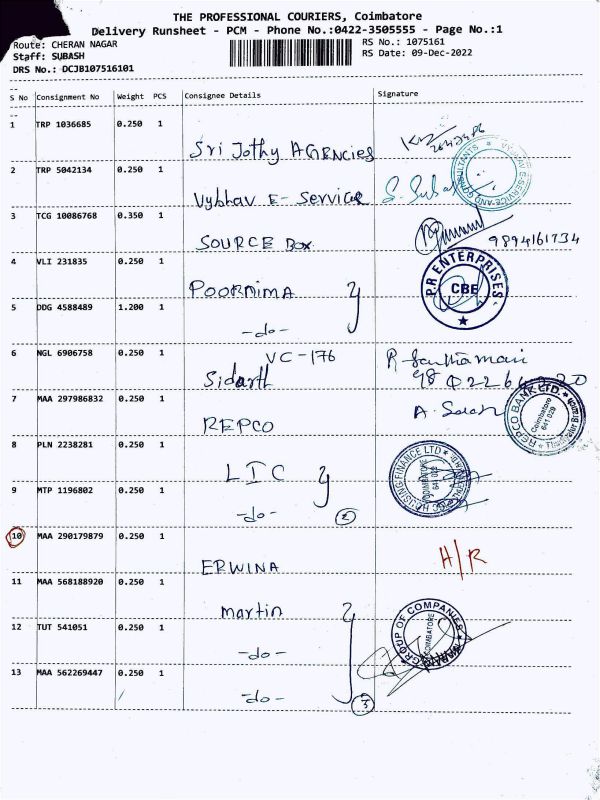 THE PROFESSIONAL COURIERS, Coimbatore
Delivery Runsheet - PCM - Phone No.:0422-3505555 - Page No.:1
Route: CHERAN NAGAR
RS No.: 1075161
Staff: SUBASH
RS Date: 09-Dec-2022
DRS No.: DCJB107516101
S No Consignment No Weight PCS Consignee Details Signature
1 TRP 1036685 0.250 1
Sri Jothy AGENCIES
2 TRP 5042134 0.250 1
Vybhav E- Service S. Suba
3 TCG 10086768 0.350 1
SOURCE Box 9894161734
4 VLI 231835 0.250 1
POORNIMA P.R ENTERPRISES CBE
5 DDG 4588489 1.200 1
-do-
6 NGL 6906758 0.250 1
VC-176
Sidarth
7 MAA 297986832 0.250 1
REPCO REPCO BANK LTD. Coimbatore 641 029
8 PLN 2238281 0.250 1
LIC HOUSING FINANCE LTD COIMBATORE
9 MTP 1196802 0.250 1
-do- 2
10 MAA 290179879 0.250 1
ERWINA H/R
11 MAA 568188920 0.250 1
Martin GROUP OF COMPANIES COIMBATORE
12 TUT 541051 0.250 1
-do-
13 MAA 562269447 0.250 1
-do- 3